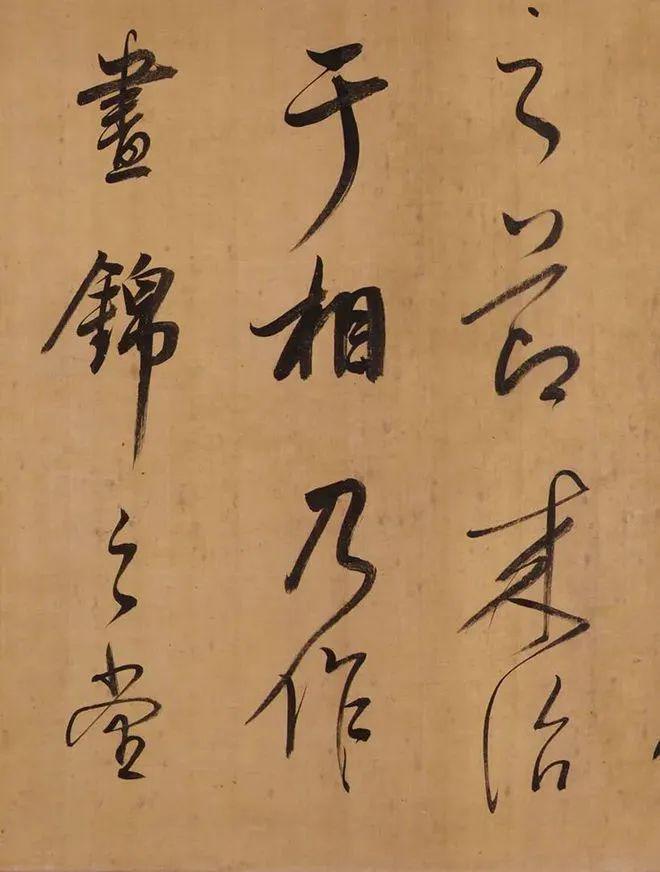 之節来治
于相乃作
晝錦之堂